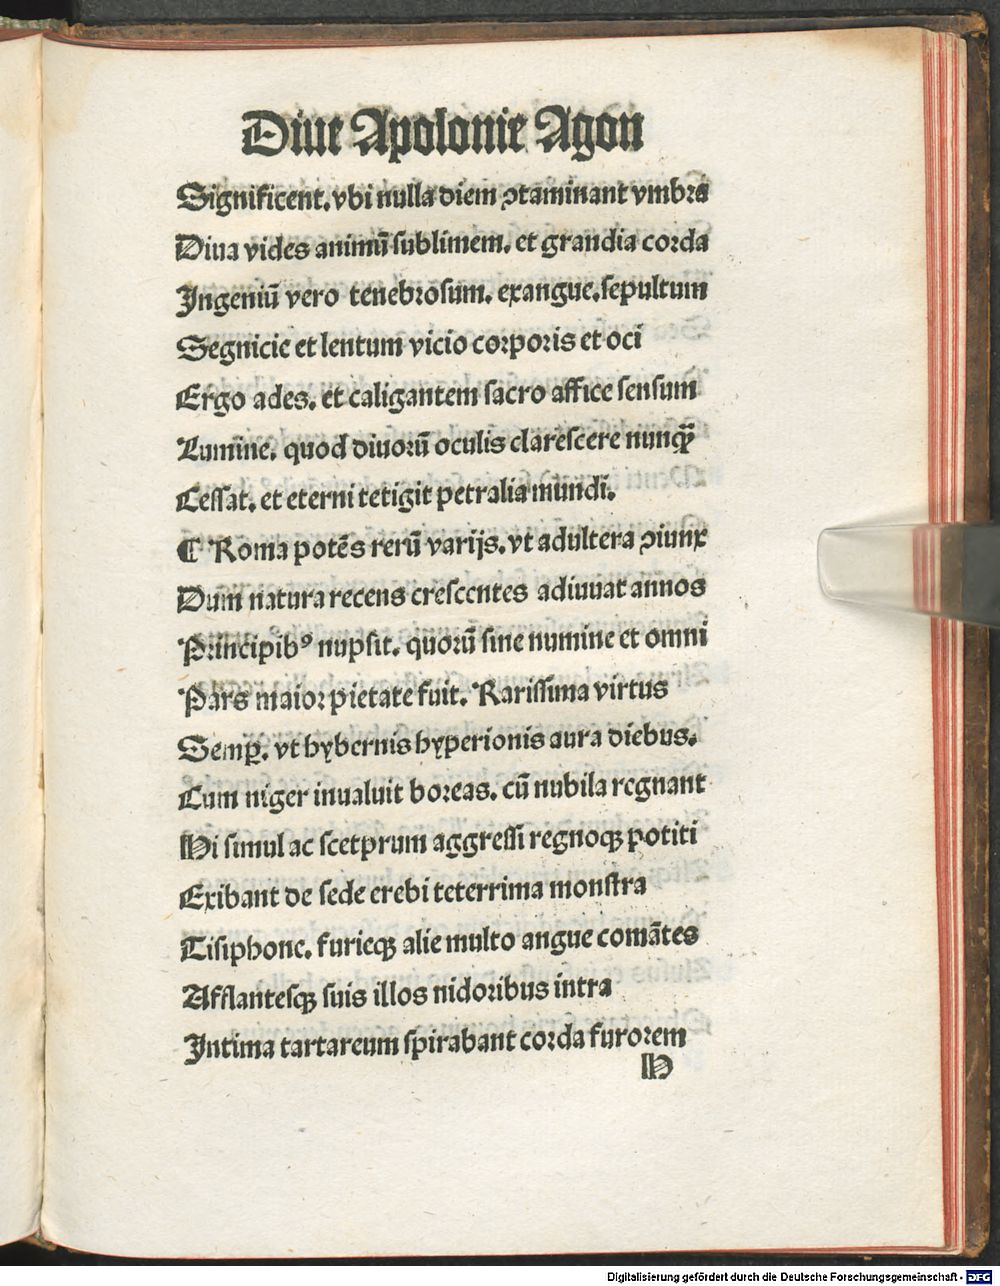 Diue Apolonie Agon
Significent. vbi nulla diem ↄtaminant vmbrę
Diua vides animū sublimem. et grandia corda
Ingeniū vero tenebrosum. exangue. sepultum
Segnicie et lentum vicio corporis et oci
Ergo ades. et caligantem sacro affice sensum
Lumīne. quod diuorū oculis clarescere nunqꝫ
Cessat. et eterni tetigit petralia mundi.
¶ Roma potēs rerū varijs. vt adultera ↄiunx
Dum natura recens crescentes adiuuat annos
Principibꝰ nupsit. quorū sine numine et omni
Pars maior pietate fuit. Rarissima virtus
Semꝑ. vt hybernis hyperionis aura diebus.
Cum niger inualuit boreas. cū nubila regnant
Hi simul ac sceptrum aggressi regnoqꝫ potiti
Exibant de sede erebi teterrima monstra
Tisiphone. furieqꝫ alie multo angue comātes
Afflantesqꝫ suis illos nidoribus intra
Intima tartareum spirabant corda furorem
H
Digitalisierung gefördert durch die Deutsche Forschungsgemeinschaft - DFG